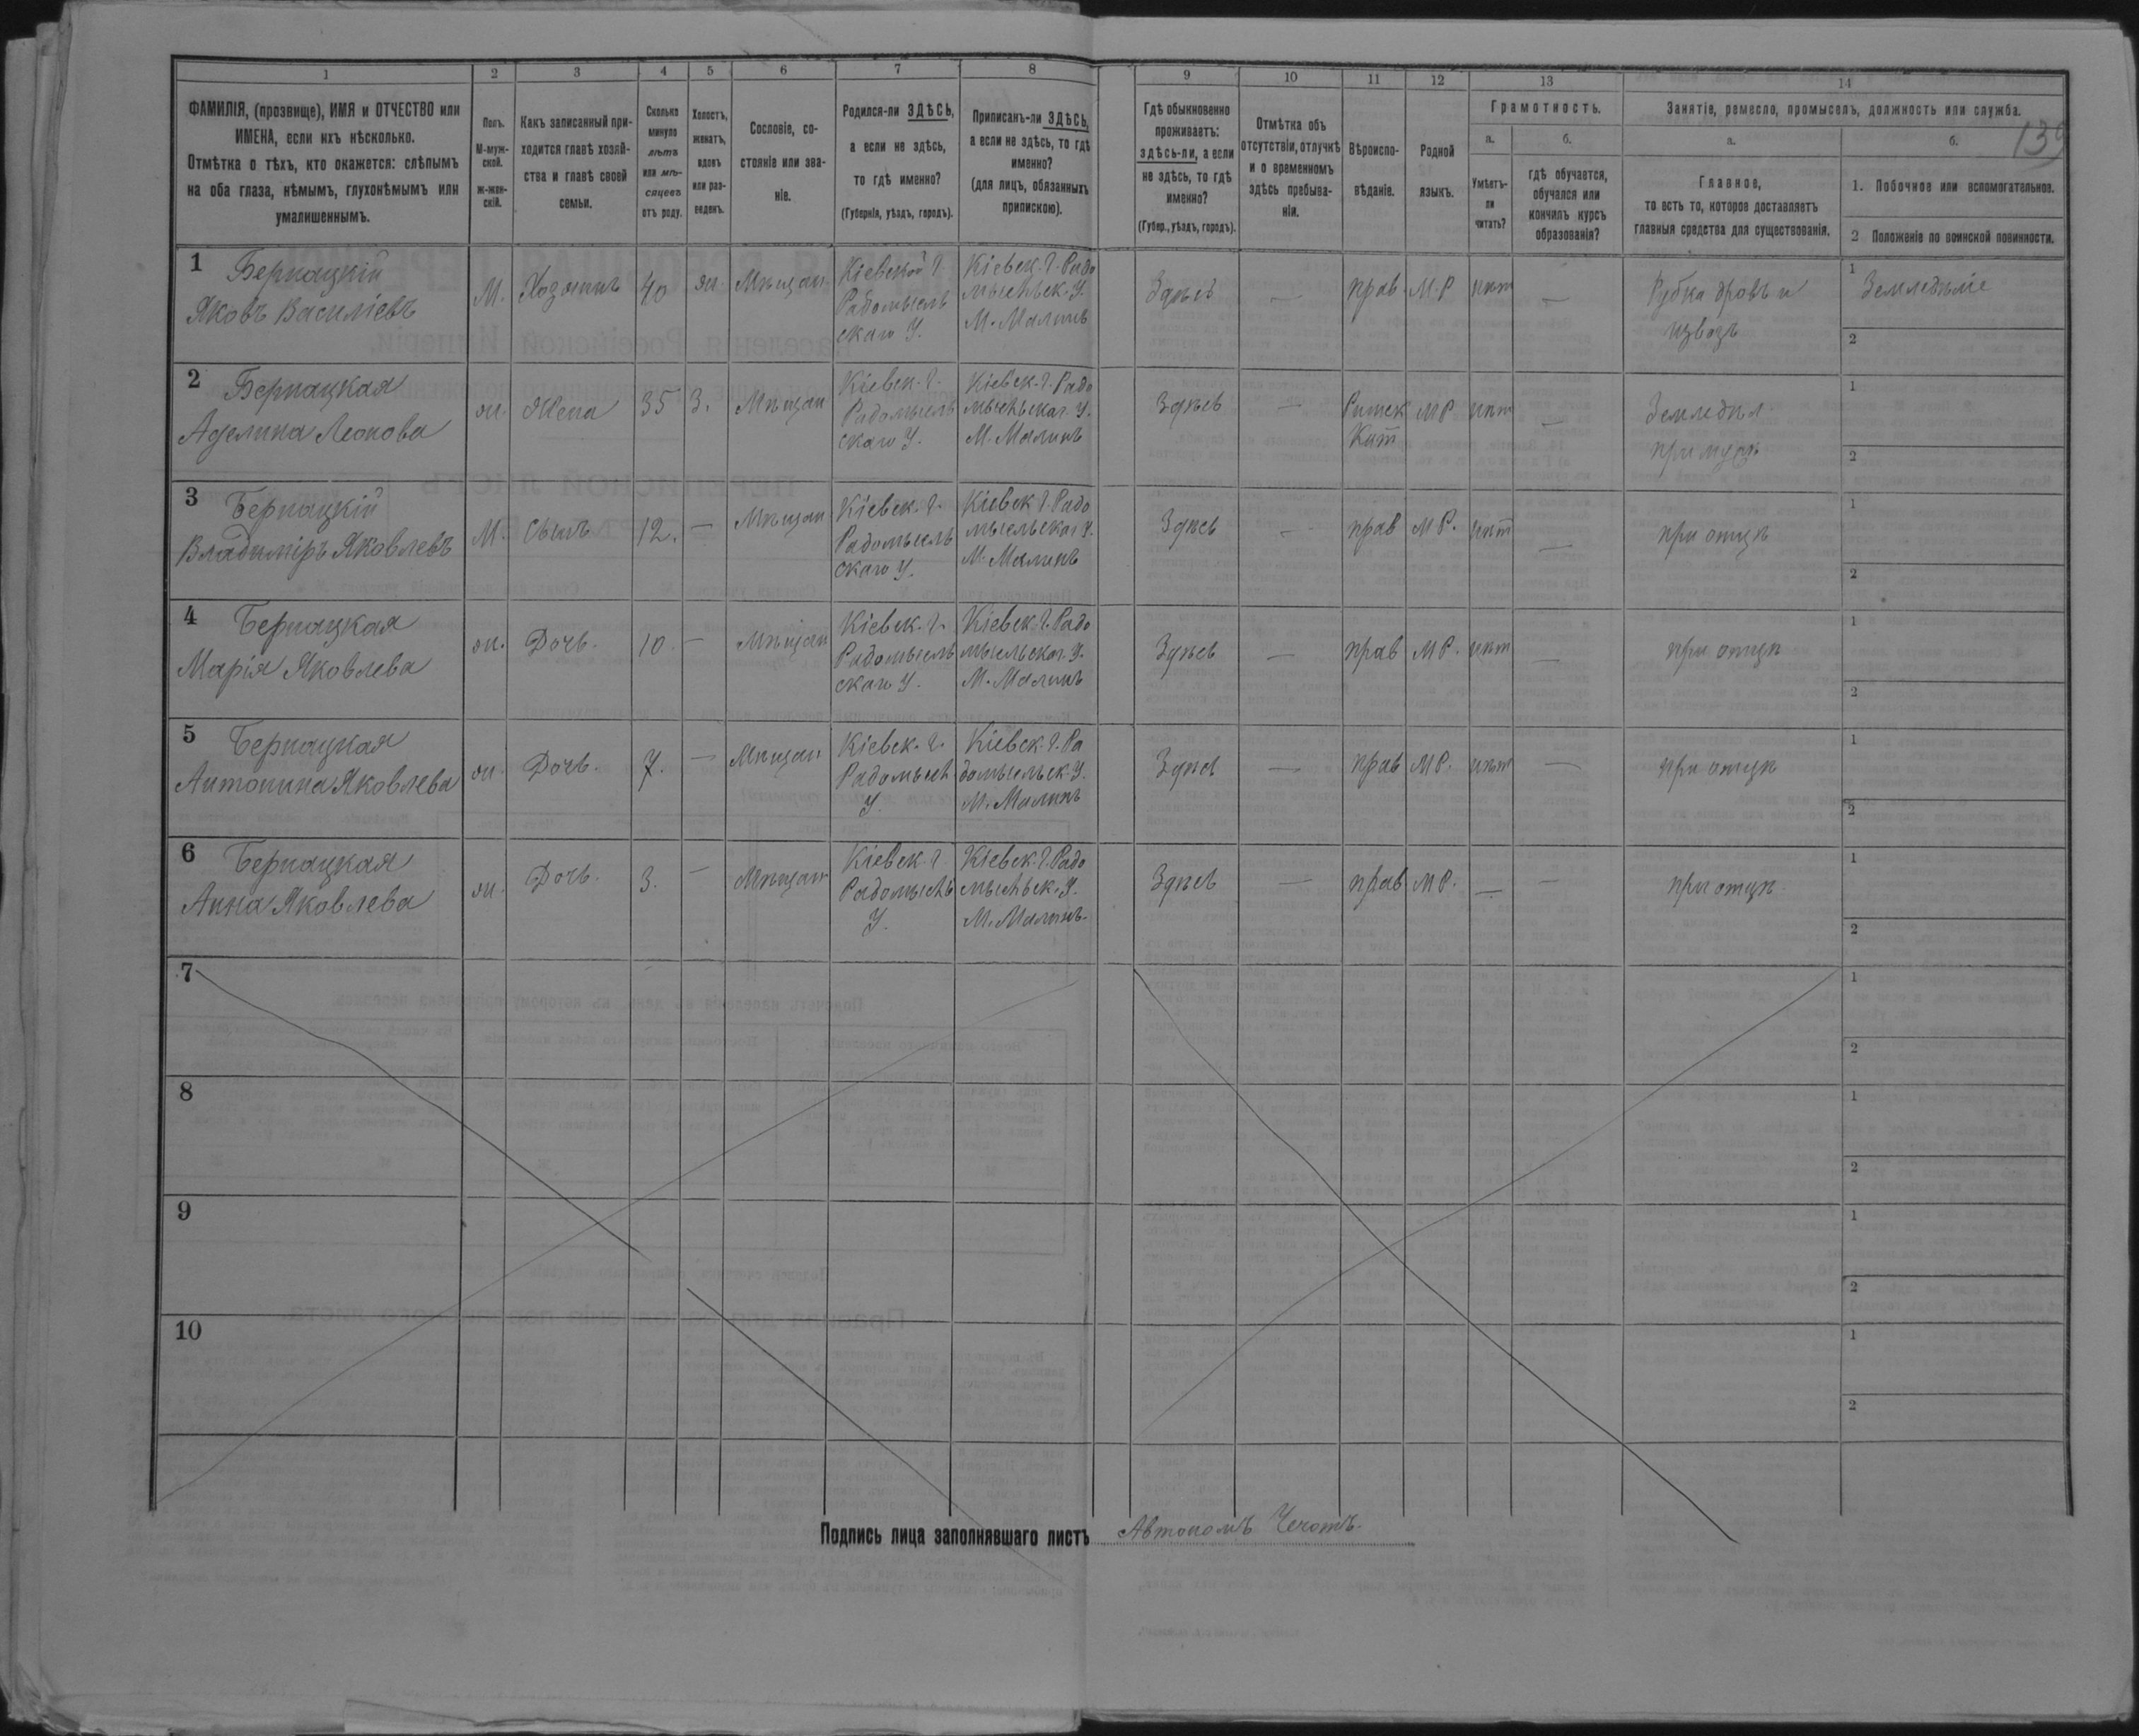 1 2 3 4 5 6 7 8 9 10 11 12 13 14
139
ФАМИЛІЯ, (прозвище), ИМЯ и ОТЧЕСТВО или
ИМЕНА, если ихъ нѣсколько.
Отмѣтка о тѣхъ, кто окажется: слѣпымъ
на оба глаза, нѣмымъ, глухонѣмымъ или
умалишеннымъ.
Полъ.
М-муж-
ской.
ж-жен-
скій.
Какъ записанный при-
ходится главѣ хозяй-
ства и главѣ своей
семьи.
Сколько
минуло
лѣтъ
или мѣ-
сяцевъ
отъ роду.
Холостъ,
женатъ,
вдовъ
или раз-
веденъ.
Сословіе, со-
стояніе или зва-
ніе.
Родился-ли ЗДѢСЬ,
а если не здѣсь,
то гдѣ именно?
(Губернія, уѣздъ, городъ).
Приписанъ-ли ЗДѢСЬ,
а если не здѣсь, то гдѣ
именно?
(для лицъ, обязанныхъ
припискою).
Гдѣ обыкновенно
проживаетъ:
здѣсь-ли, а если
не здѣсь, то гдѣ
именно?
(Губер., уѣздъ, городъ).
Отмѣтка объ
отсутствіи, отлучкѣ
и о временномъ
здѣсь пребыва-
ніи.
Вѣроиспо-
вѣданіе.
Родной
языкъ.
Грамотность.
а.
Умѣетъ-
ли
читать?
б.
гдѣ обучается,
обучался или
кончилъ курсъ
образованія?
Занятіе, ремесло, промыселъ, должность или служба.
а.
Главное,
то есть то, которое доставляетъ
главныя средства для существованія.
б.
1. Побочное или вспомогательное.
2 Положеніе по воинской повинности.
1 Бернацкій
Яковъ Василіевъ
М.
Хозяинъ
40
ж.
Мѣщан
Кіевской Г.
Радомысль
скаго У.
Кіевск. Г. Радо
мысльск. У.
М. Малинъ
Здѣсь
—
прав
М.Р
нѣт
—
Рубка дровъ и
извозъ
1 Земледѣліе
2
2 Бернацкая
Аделина Леонова
ж.
Жена
35
З.
Мѣщан
Кіевск. Г.
Радомысль
скаго У.
Кіевск. Г. Радо
мысльског. У.
М. Малинъ
Здѣсь
—
Римск
Кат
М Р.
нѣт
—
Земледѣл
при мужѣ
1
2
3 Бернацкій
Владиміръ Яковлевъ
М.
Сынъ
12.
—
Мѣщан
Кіевск. Г.
Радомысль
скаго У.
Кіевск Г. Радо
мысльског У.
М. Малинъ
Здѣсь
—
прав
М Р.
нѣт
—
при отцѣ
1
2
4 Бернацкая
Марія Яковлева
ж.
Дочь.
10.
—
Мѣщан
Кіевск. Г.
Радомысль
скаго У.
Кіевск. Г. Радо
мысльског. У.
М. Малинъ
Здѣсь
—
прав
М Р.
нѣт
—
при отцѣ
1
2
5 Бернацкая
Антонина Яковлева
ж.
Дочь.
7.
—
Мѣщан
Кіевск. Г.
Радомысл
У.
Кіевск. Г. Ра
домысльск. У.
М. Малинъ
Здѣсь
—
прав
М Р.
нѣт
—
при отцѣ
1
2
6 Бернацкая
Анна Яковлева
ж.
Дочь.
3.
—
Мѣщан
Кіевск. Г
Радомысль
У.
Кіевск. Г. Радо
мысльск. У.
М. Малинъ
Здѣсь
—
прав
М Р.
—
—
при отцѣ
1
2
7
1
2
8
1
2
9
1
2
10
1
2
Подпись лица заполнявшаго листъ Автономъ Чечотъ